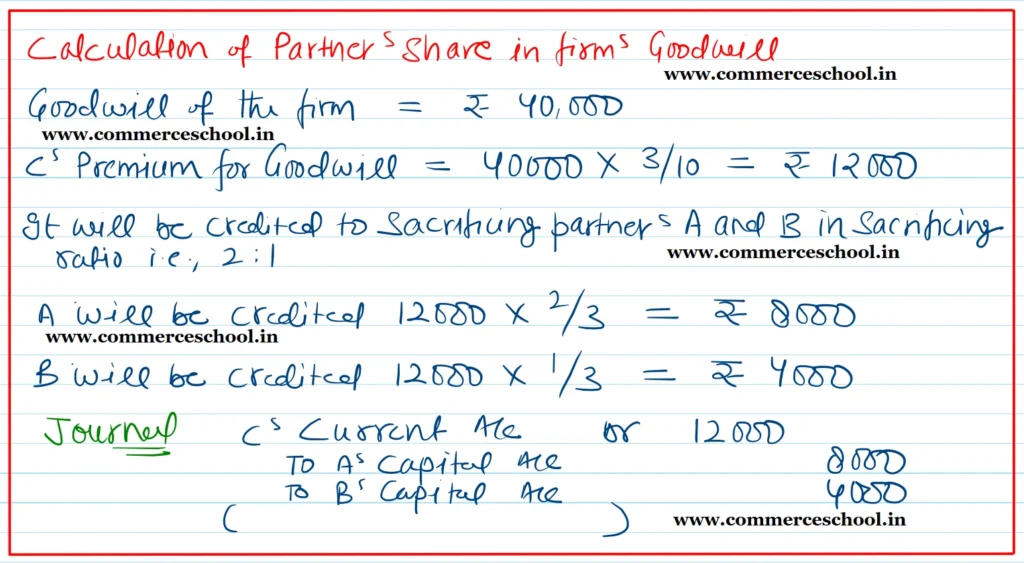 Calculation of Partner's Share in firm's Goodwill
www.commerceschool.in
Goodwill of the firm = ₹ 40,000
www.commerceschool.in
C's Premium for Goodwill = 40000 × 3/10 = ₹ 12000
It will be credited to Sacrificing partner's A and B in Sacrificing
ratio i.e., 2:1
www.commerceschool.in
A will be credited 12000 × 2/3 = ₹ 8000
www.commerceschool.in
B will be credited 12000 × 1/3 = ₹ 4000
Journal C's Current A/c Dr 12000
To A's Capital A/c 8000
To B's Capital A/c 4000
( )
www.commerceschool.in